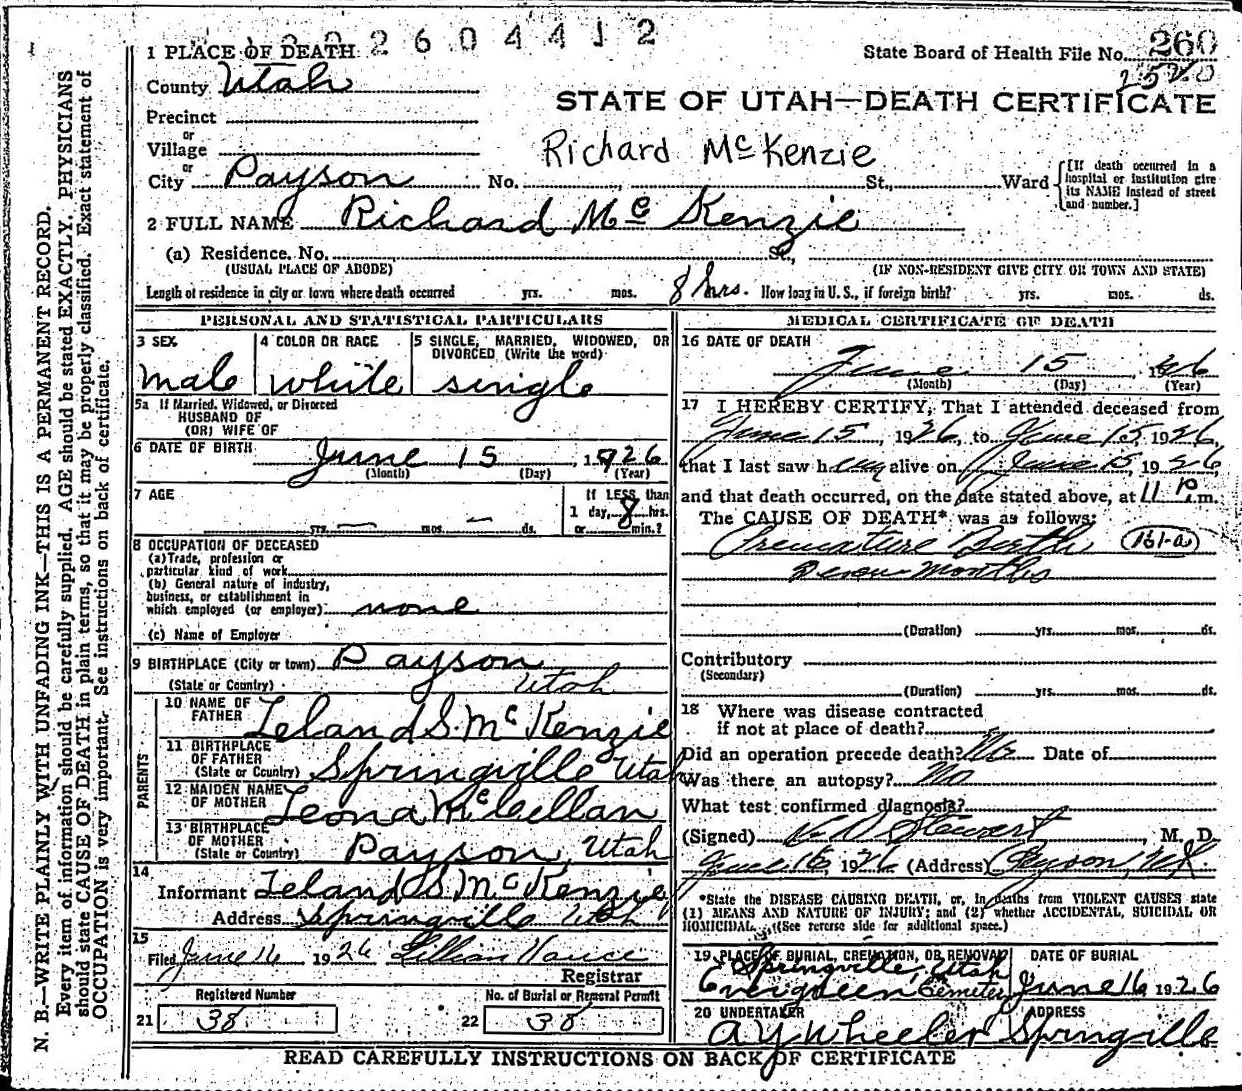 2604412
1 PLACE OF DEATH
State Board of Health File No. 260
2520
County Utah
STATE OF UTAH—DEATH CERTIFICATE
Precinct
or
Village
Richard McKenzie
or
City Payson No. St., Ward
[If death occurred in a hospital or institution give its NAME instead of street and number.]
2 FULL NAME Richard McKenzie
(a) Residence. No. St.,
(USUAL PLACE OF ABODE) (IF NON-RESIDENT GIVE CITY OR TOWN AND STATE)
Length of residence in city or town where death occurred yrs. mos. 8 hrs. How long in U. S., if foreign birth? yrs. mos. ds.
PERSONAL AND STATISTICAL PARTICULARS
3 SEX
male
4 COLOR OR RACE
white
5 SINGLE, MARRIED, WIDOWED, OR DIVORCED (Write the word)
single
5a If Married, Widowed, or Divorced
HUSBAND OF
(OR) WIFE OF
6 DATE OF BIRTH June 15, 1926
(Month) (Day) (Year)
7 AGE
yrs. — mos. — ds.
If LESS than
1 day, 8 hrs.
or min.?
8 OCCUPATION OF DECEASED
(a) Trade, profession or
particular kind of work
(b) General nature of industry,
business, or establishment in
which employed (or employer) none
(c) Name of Employer
9 BIRTHPLACE (City or town) Payson
(State or Country) Utah
PARENTS
10 NAME OF FATHER Leland S. McKenzie
11 BIRTHPLACE OF FATHER
(State or Country) Springville Utah
12 MAIDEN NAME OF MOTHER Leona McClellan
13 BIRTHPLACE OF MOTHER
(State or Country) Payson, Utah
14
Informant Leland S. McKenzie
Address Springville Utah
15
Filed June 16 1926 Lillian Vance
Registrar
Registered Number
21 38
No. of Burial or Removal Permit
22 38
MEDICAL CERTIFICATE OF DEATH
16 DATE OF DEATH
June 15, 1926
(Month) (Day) (Year)
17 I HEREBY CERTIFY, That I attended deceased from
June 15, 1926, to June 15, 1926,
that I last saw him alive on June 15, 1926,
and that death occurred, on the date stated above, at 11 P.m.
The CAUSE OF DEATH* was as follows:
Premature Birth 161-a
Seven months
(Duration) yrs. mos. ds.
Contributory
(Secondary)
(Duration) yrs. mos. ds.
18 Where was disease contracted
if not at place of death?
Did an operation precede death? No Date of
Was there an autopsy? No
What test confirmed diagnosis?
(Signed) Stewart, M. D.
June 16, 1926 (Address) Payson, Ut.
*State the DISEASE CAUSING DEATH, or, in deaths from VIOLENT CAUSES state
(1) MEANS AND NATURE OF INJURY; and (2) whether ACCIDENTAL, SUICIDAL OR
HOMICIDAL. (See reverse side for additional space.)
19 PLACE OF BURIAL, CREMATION, OR REMOVAL
Springville, Utah
Evergreen Cemetery
DATE OF BURIAL
June 16 1926
20 UNDERTAKER
A Y Wheeler
ADDRESS
Springville
READ CAREFULLY INSTRUCTIONS ON BACK OF CERTIFICATE
N. B.—WRITE PLAINLY WITH UNFADING INK—THIS IS A PERMANENT RECORD.
Every item of information should be carefully supplied. AGE should be stated EXACTLY. PHYSICIANS
should state CAUSE OF DEATH in plain terms, so that it may be properly classified. Exact statement of
OCCUPATION is very important. See instructions on back of certificate.